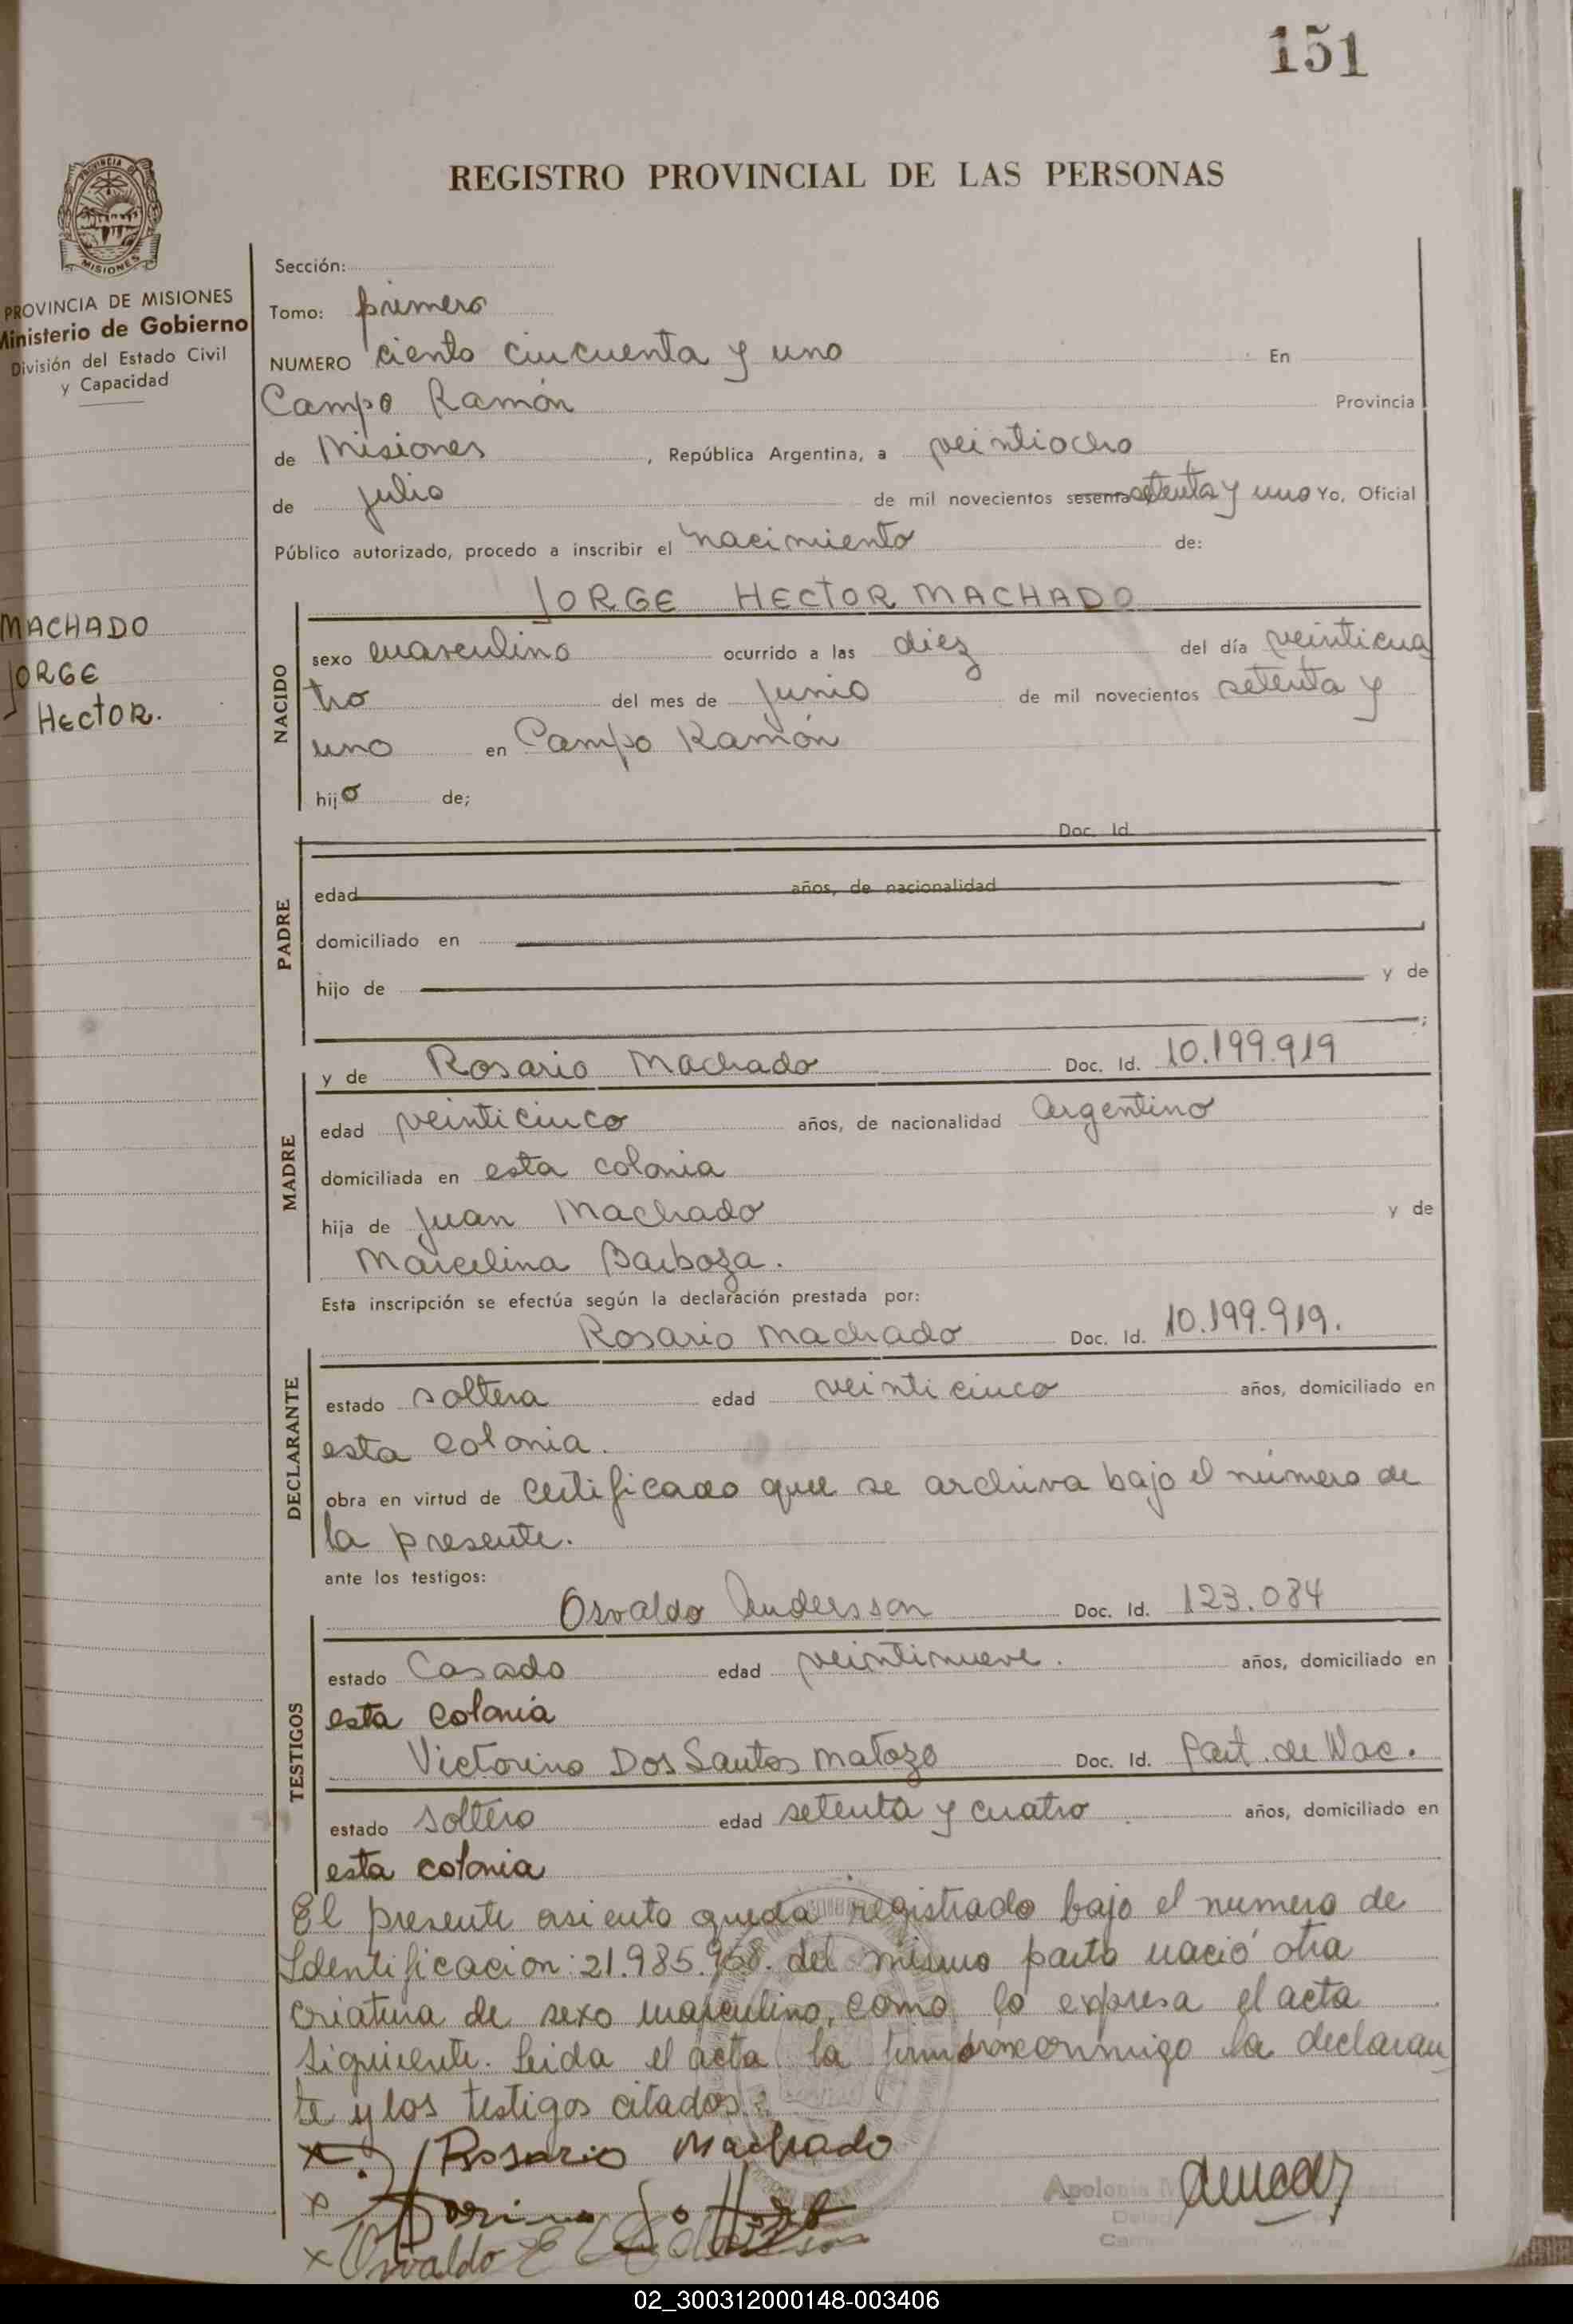 151
REGISTRO PROVINCIAL DE LAS PERSONAS
PROVINCIA DE MISIONES
Ministerio de Gobierno
División del Estado Civil
y Capacidad
MACHADO
JORGE
HECTOR.
Sección:
Tomo: primero
NUMERO ciento cincuenta y uno En
Campo Ramón Provincia
de Misiones, República Argentina, a veintiocho
de julio de mil novecientos sesenta setenta y uno Yo, Oficial
Público autorizado, procedo a inscribir el nacimiento de:
JORGE HECTOR MACHADO
NACIDO
sexo masculino ocurrido a las diez del día veinticua
tro del mes de junio de mil novecientos setenta y
uno en Campo Ramón
hijo de;
PADRE
Doc. Id.
edad años, de nacionalidad
domiciliado en
hijo de y de
;
MADRE
y de Rosario Machado Doc. Id. 10.199.919
edad veinticinco años, de nacionalidad Argentino
domiciliada en esta colonia
hija de Juan Machado y de
Marcelina Barboza.
Esta inscripción se efectúa según la declaración prestada por:
DECLARANTE
Rosario Machado Doc. Id. 10.199.919.
estado soltera edad veinticinco años, domiciliado en
esta colonia.
obra en virtud de certificado que se archiva bajo el número de
la presente.
ante los testigos:
TESTIGOS
Osvaldo Andersson Doc. Id. 123.084
estado Casado edad veintinueve. años, domiciliado en
esta colonia
Victorino Dos Santos Matozo Doc. Id. Part. de Nac.
estado soltero edad setenta y cuatro años, domiciliado en
esta colonia
El presente asiento queda registrado bajo el numero de
Identificacion: 21.985.958. del mismo parto nació otra
criatura de sexo masculino, como lo expresa el acta
siguiente. Leida el acta la firman conmigo la declaran
te y los testigos citados.
x Rosario Machado
x
x Osvaldo E
Apolonia
02_300312000148-003406